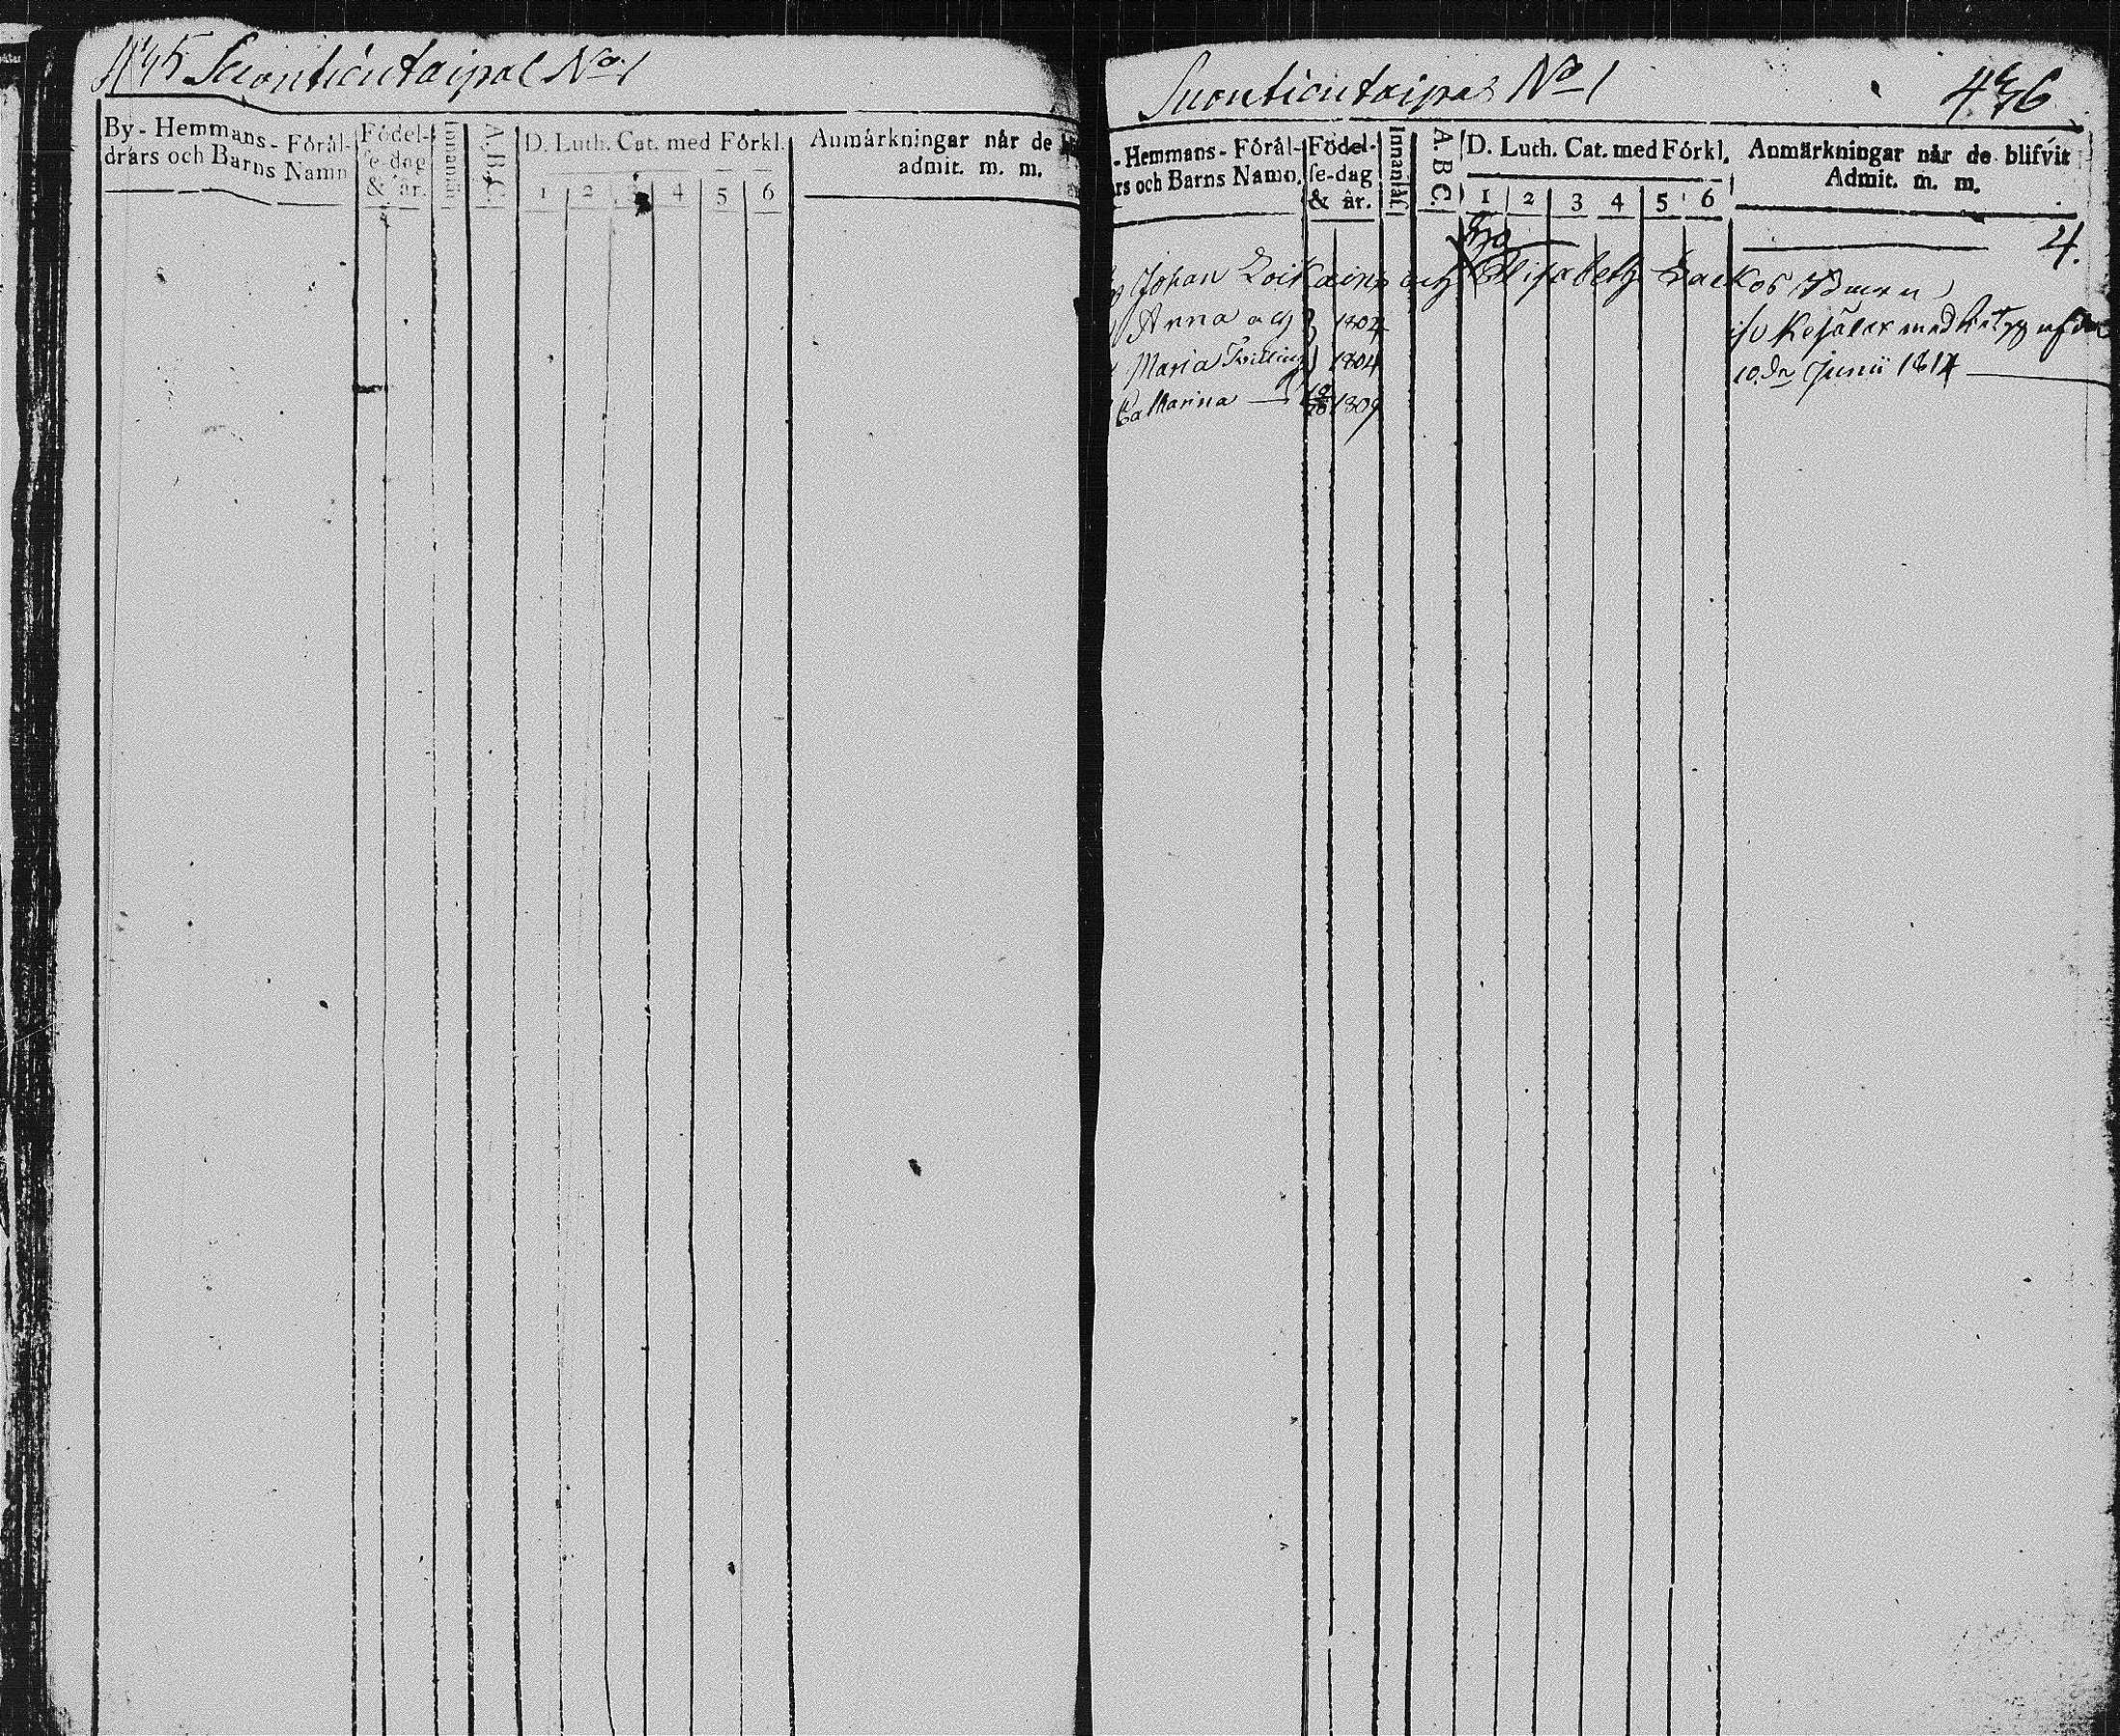 Suontientaipal No 1
By- Hemmans- Förål-
drars och Barns Namn
Födel-
se-dag
& år.
Innanläs.
A. B. C.
D. Luth. Cat. med Förkl.
1 2 3 4 5 6
Anmärkningar når de
admit. m. m.
Suontientaipal No 1 436
- Hemmans- Förål-
rs och Barns Namn.
Födel-
se-dag
& år.
Innanläs.
A. B C.
D. Luth. Cat. med Förkl.
1 2 3 4 5 6
Anmärkningar når de blifvit
Admit. m. m.
4.
Johan Loikainen och Elisabeth Lackos Barn
Anna och 1804
Maria Tvilling 1804
Catharina 1809
10 dn Junii 1814